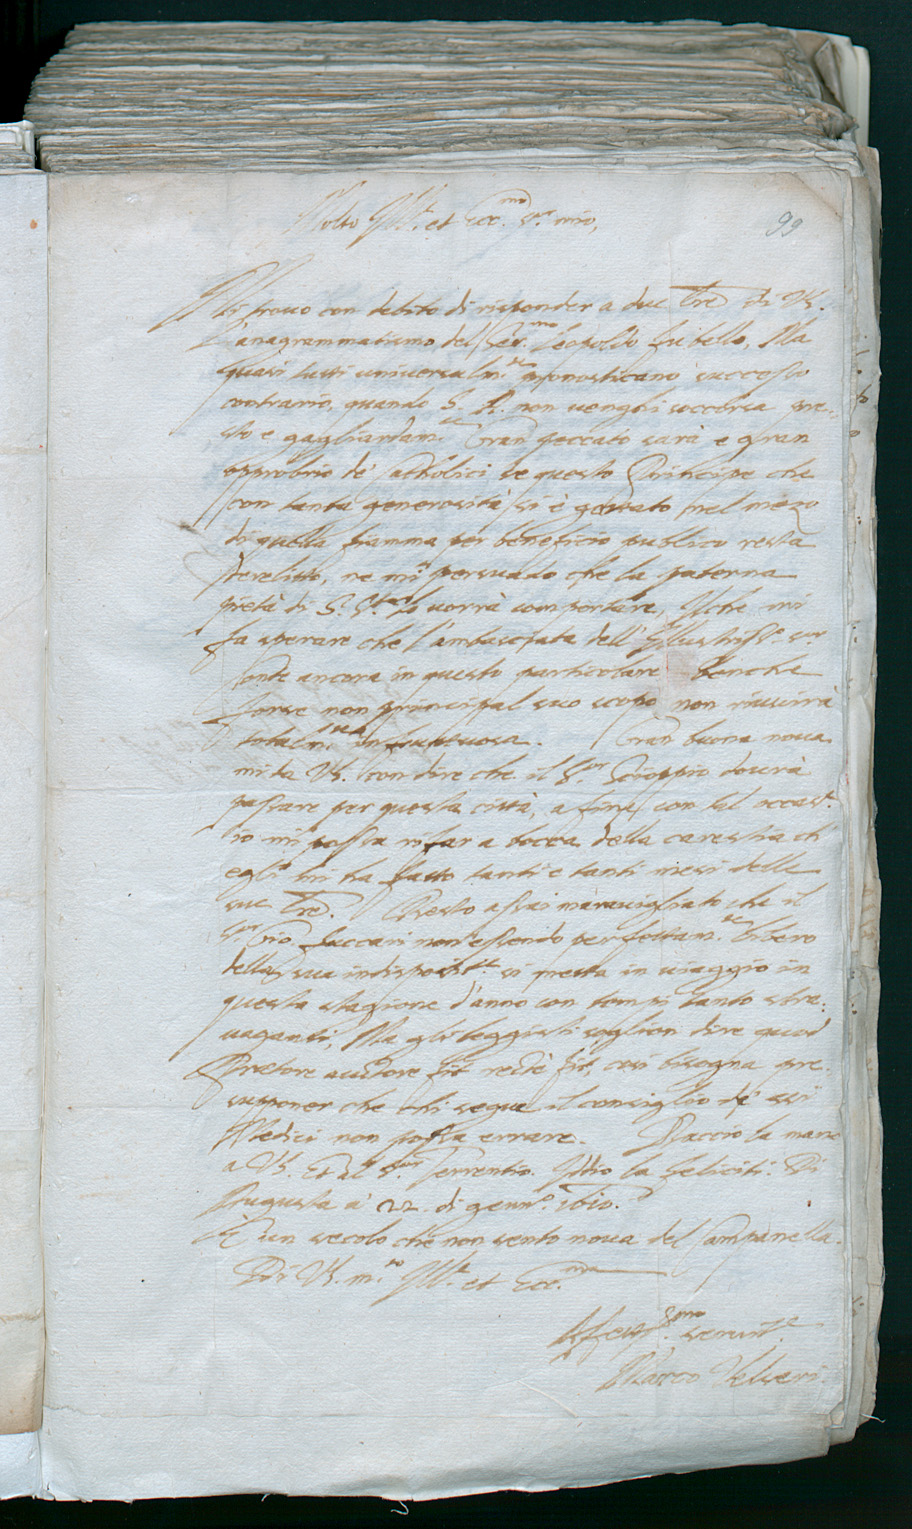 Molto Ill.re et Ecc.mo S.r mio,
99
Mi trovo con debito di risponder a due l're di VS.
L'anagrammatismo del Ser.mo Leopoldo fu bello, Ma
quasi tutti universalm.te pronosticano successo
contrario, quando S. A. non venghi soccorsa pre-
sto e gagliardam.te Gran peccato sarà e gran
opprobrio de' Catholici se questo Principe che
con tanta generosità si è gettato nel mezo
di quella fiamma per beneficio publico resta
derelitto, ne mi persuado che la paterna
pietà di S. S.tà lo vorrà comportare, Il che mi
fa sperare che l'ambasciata dell' Illustriss.o
Conte ancora in questo particolare benche
forse non principal suo scopo non riuscirà
totalm.te infruttuosa. Gran buona nova
mi da VS. con dire che il S.or Scioppio dovrà
passare per questa città, a fine con tal occas.e
io mi possa rifar a bocca della carestia ch'
egli mi ha fatto tanti e tanti mesi delle
sue l're. Resto assai maravigliato che il
S.or Gio. Faccari non essendo perfettam.te libero
della sua indisposit.e si metta in viaggio in
questa stagione d'anno con tempi tanto stra-
vaganti, Ma gli leggisti soglion dire quod
Praetore auctore fit recte fit, cosi bisogna pre-
supponer che chi segue il consiglio de' ssri
Medici non possa errare. Baccio la mano
a VS. Et al S.or Terrentio. Iddio la feliciti. Di
Augusta a' 22. di genn.o 1610.
È un secolo che non sento nova del Campanella.
Di VS. m.to Ill.re et Ecc.ma
Affett.mo servit.e
Marco Velseri.